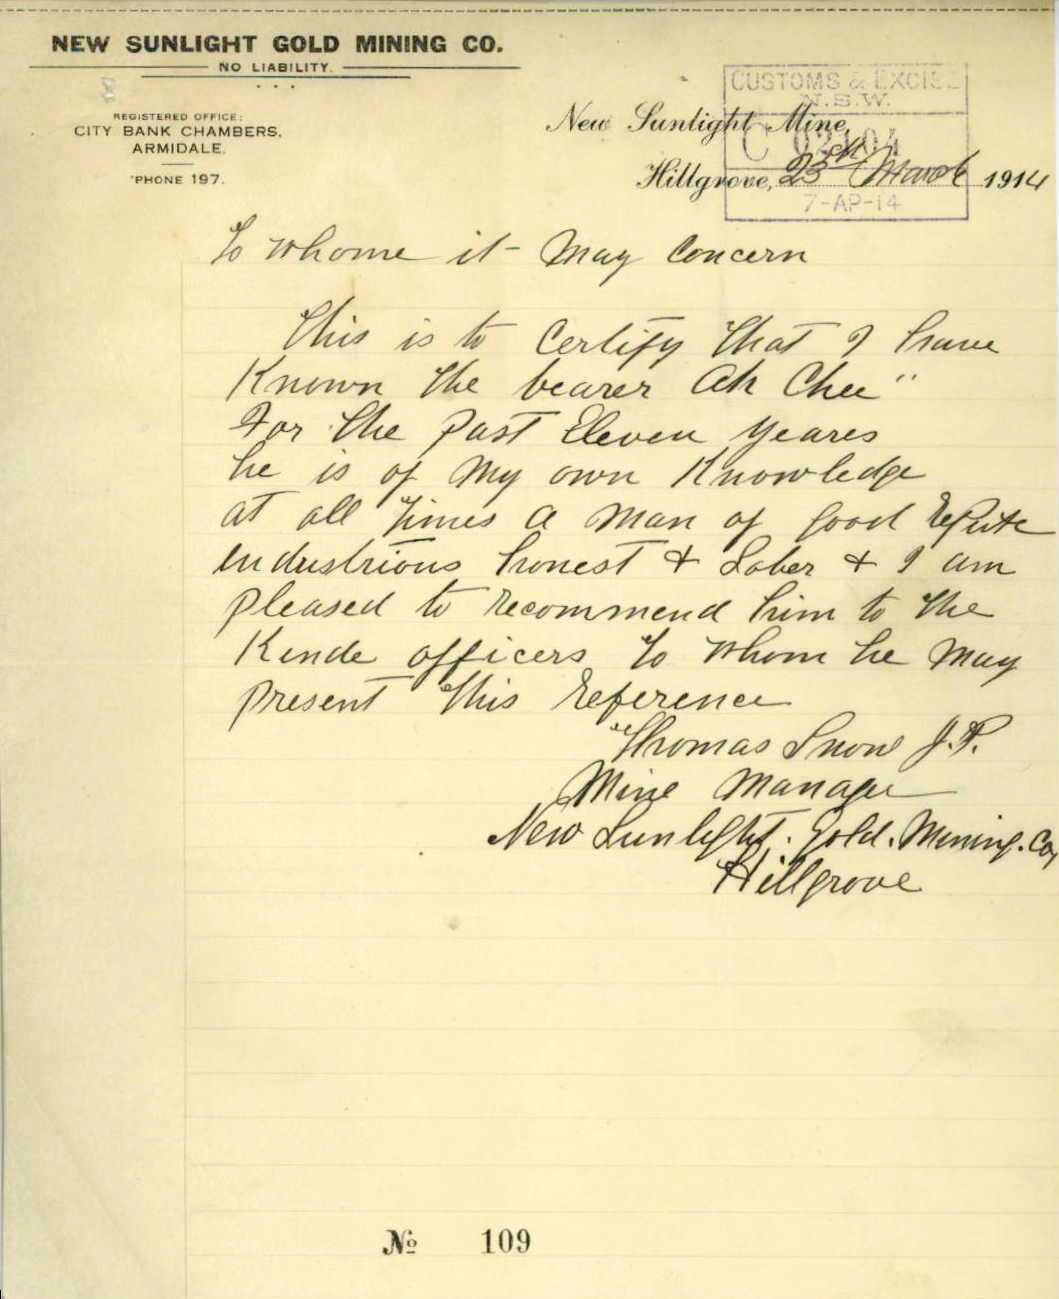 NEW SUNLIGHT GOLD MINING CO.
NO LIABILITY.
REGISTERED OFFICE:
CITY BANK CHAMBERS,
ARMIDALE.
'PHONE 197.
CUSTOMS & EXCISE
N.S.W.
C 02404
7-AP-14
New Sunlight Mine,
Hillgrove, 23th March 1914
To Whome it May Concern
This is to Certify That I have
Known the bearer Ah Chee"
For the Past Eleven Yeares
he is of My own Knowledge
at all Times a Man of Good Repute
Industrious honest & Sober & I am
pleased to Recommend him to the
Kinde officers To Whom he May
Present This Reference
Thomas Snow J.P.
Mine Manager
New Sunlight. Gold. Mining. Co,
Hillgrove
No 109